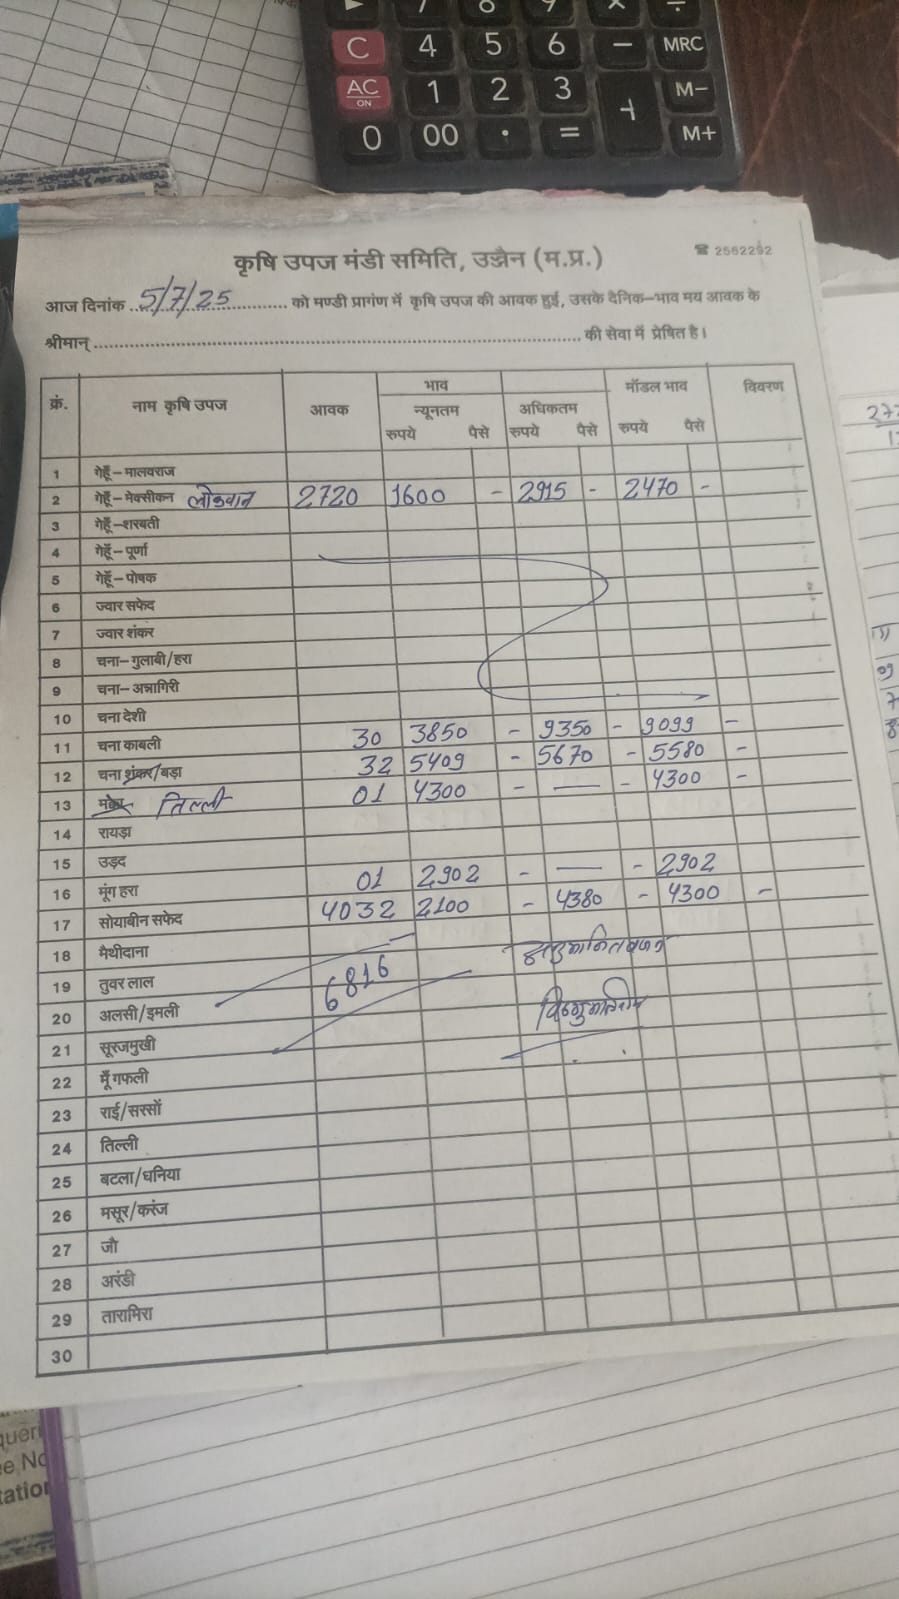 7 8 9 × ÷
C 4 5 6 − MRC
AC
ON 1 2 3 + M−
0 00 . = M+
कृषि उपज मंडी समिति, उज्जैन (म.प्र.) ☎ 2562292
आज दिनांक 5/7/25 को मण्डी प्रागंण में कृषि उपज की आवक हुई, उसके दैनिक-भाव मय आवक के
श्रीमान् की सेवा में प्रेषित है।
क्रं. नाम कृषि उपज आवक भाव मॉडल भाव विवरण
न्यूनतम अधिकतम
रुपये पैसे रुपये पैसे रुपये पैसे
1 गेहूँ-मालवराज
2 गेहूँ-मेक्सीकन लोकवान 2720 1600 - 2915 - 2470 -
3 गेहूँ-शरबती
4 गेहूँ-पूर्णा
5 गेहूँ-पोषक
6 ज्वार सफेद
7 ज्वार शंकर
8 चना-गुलाबी/हरा
9 चना-अन्नागिरी
10 चना देशी
11 चना काबली 30 3850 - 9350 - 9099 -
12 चना शंकर/बड़ा 32 5409 - 5670 - 5580 -
13 मक्का तिल्ली 01 4300 - — - 4300 -
14 रायड़ा
15 उड़द
16 मूंग हरा 01 2902 - — - 2902
17 सोयाबीन सफेद 4032 2100 - 4380 - 4300 -
18 मैथीदाना
19 तुवर लाल 6816
20 अलसी/इमली
21 सूरजमुखी
22 मूँगफली
23 राई/सरसों
24 तिल्ली
25 बटला/धनिया
26 मसूर/करंज
27 जौ
28 अरंडी
29 तारामिरा
30